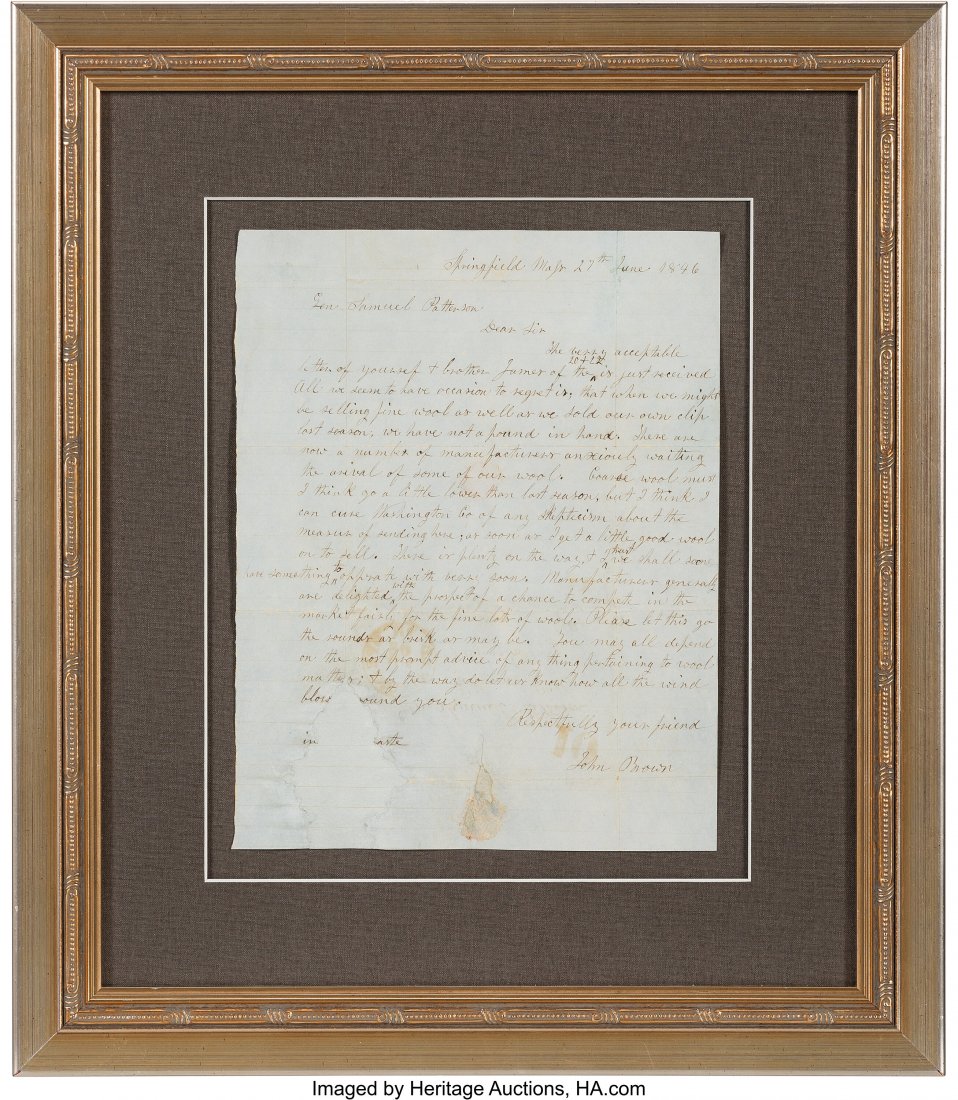 Springfield Mass 27th June 1846
Gen Samuel Patterson
Dear Sir
The verry acceptable
letter of yoursef & brother James of the 20 & 22 is just received
All we seem to have occasion to regret is; that when we might
be selling fine wool as well as we sold our own clip
last season; we have not a pound in hand. There are
now a number of manufacturers anxiously waiting
the arival of some of our wool. Coarse wool must
I think go a little lower than last season, but I think I
can cure Washington Co of any skepticism about the
measure of sending here; as soon as I get a little good wool
on to sell. There is plenty on the way, & I trust we shall soone
have something to opprate with verry soon. Manufacturers generally
are delighted with the prospect of a chance to compete in the
market fairly for the fine lots of wool. Please let this go
the rounds as brisk as may be. You may all depend
on the most prompt advice of any thing pertaining to wool
matters; & by the way do let us know how all the wind
blows ound you.
Respectfully your friend
in aste
John Brown
Imaged by Heritage Auctions, HA.com